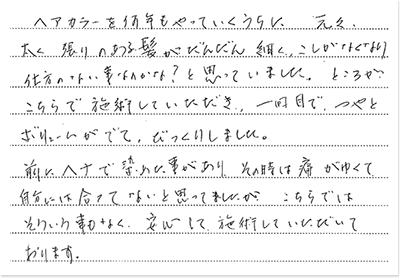 ヘアカラーを何年もやっていくうちに 元々、
太く 張りのある髪がだんだん 細く、こしがなくなり
仕方のない事なのかな?と思っていました。ところが、
こちらで 施術していただき、一回目で、つやと
ボリュームがでて、びっくりしました。
前に ヘナで染めた事があり、その時は 痛がゆくて
自分には合ってないと思ってましたが、こちらでは
そういう事もなく、安心して 施術していただいて
おります。